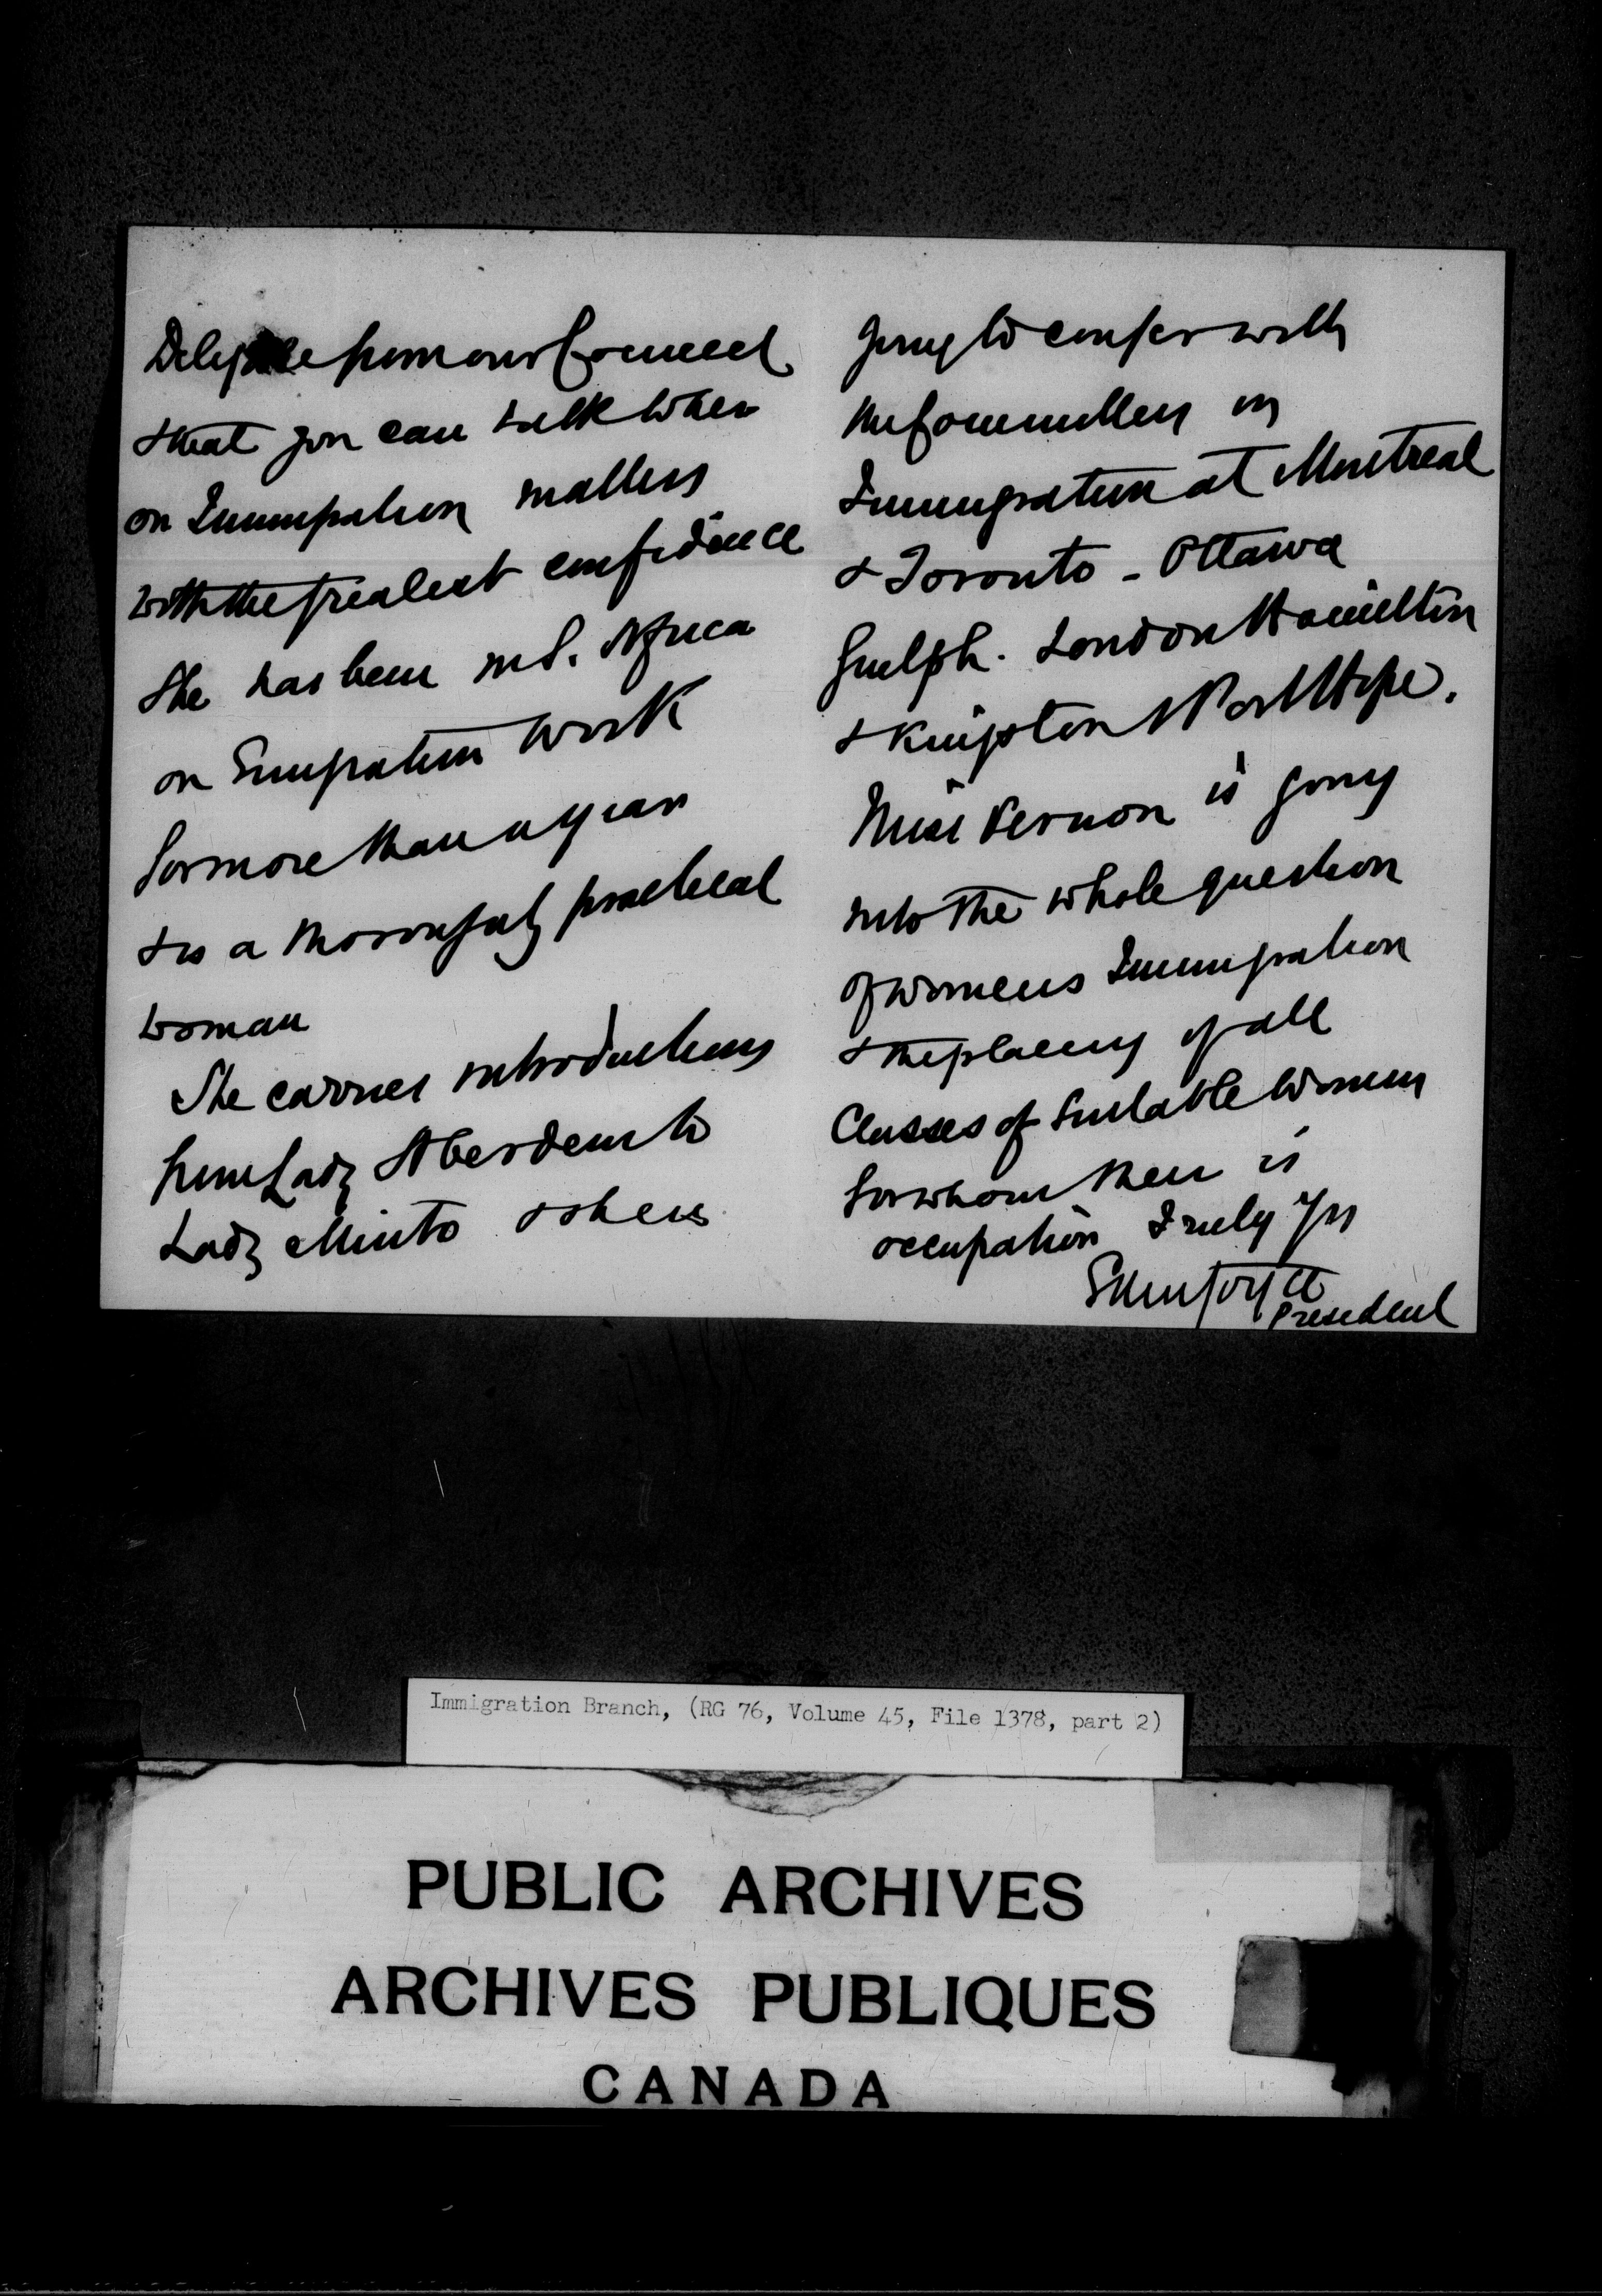 Delegate from our Council
& that you can talk to her
on Immigration matters
with the greatest confidence
She has been in S. Africa
on Emigration work
for more than a year
& is a thoroughly practical
woman
She carries introductions
from Lady Aberdeen to
Lady Minto & she is
going to confer with
the Committees on
Immigration at Montreal
& Toronto - Ottawa
Guelph. London Hamilton
& Kingston & Port Hope.
Miss Vernon is going
into the whole question
of womens Immigration
& the placing of all
Classes of Suitable Women
for whom there is
occupation Truly Yrs
President
Immigration Branch, (RG 76, Volume 45, File 1378, part 2)
PUBLIC ARCHIVES
ARCHIVES PUBLIQUES
CANADA